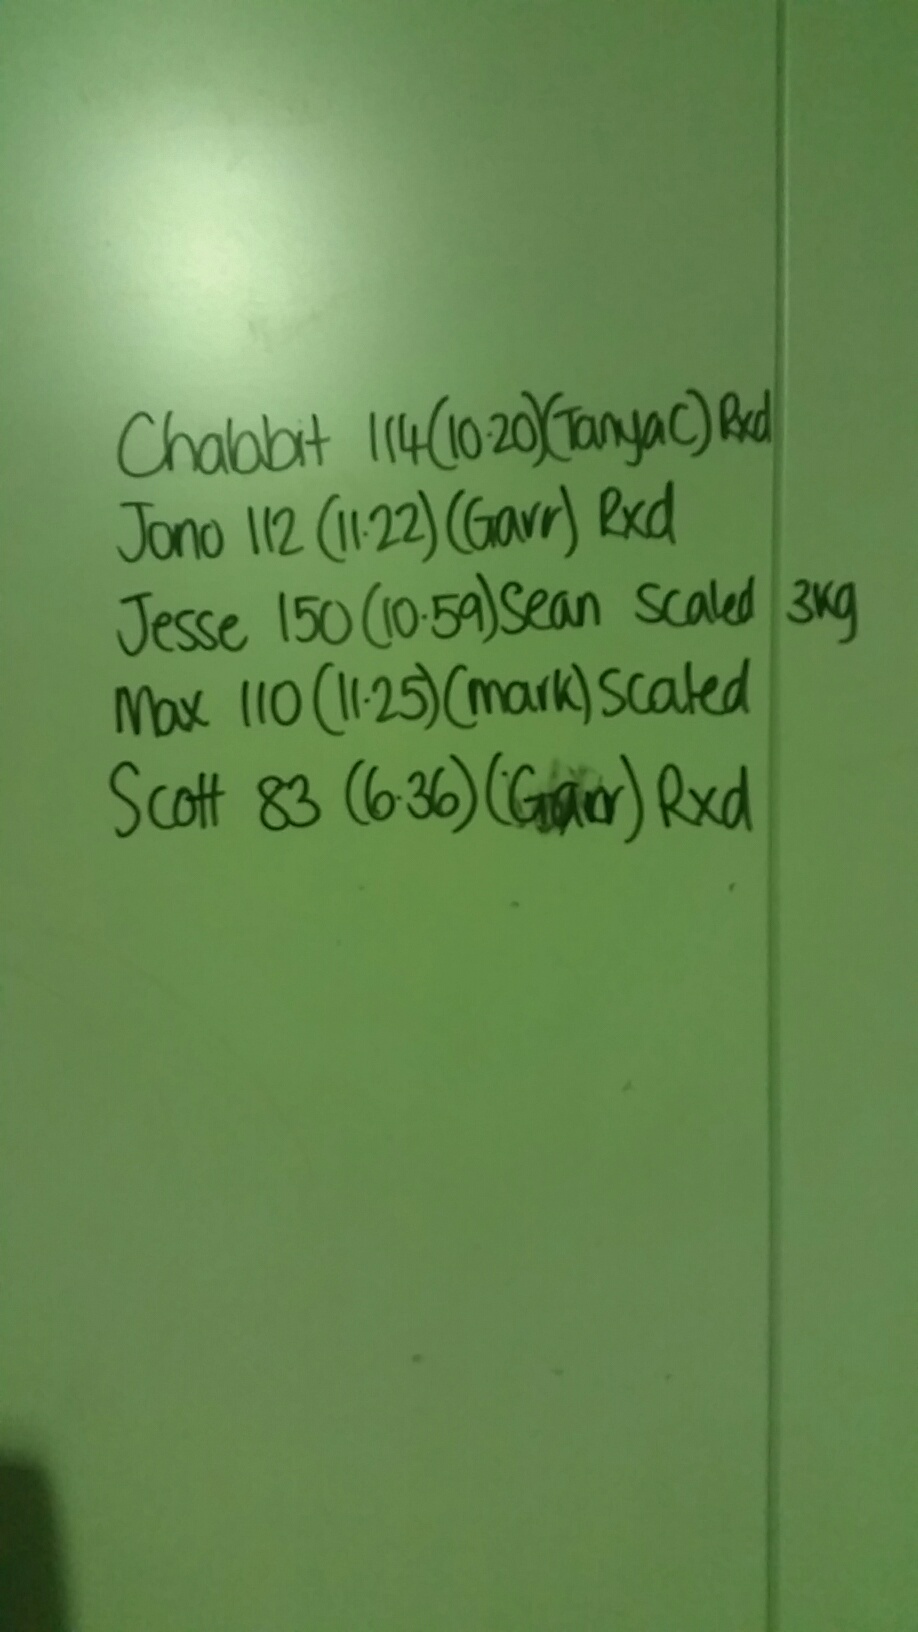 Chabbit 114(10.20)(Tanya C) Rxd
Jono 112 (11.22) (Garr) Rxd
Jesse 150 (10.59) Sean Scaled 3kg
Max 110 (11.25) (mark) Scaled
Scott 83 (6.36) (Garr) Rxd